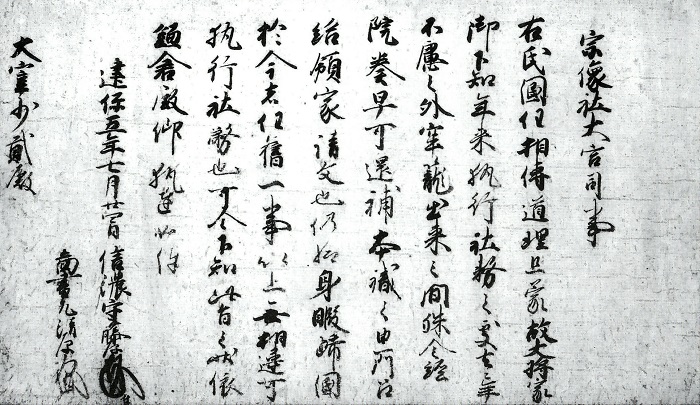 宗像社大宮司事
右氏國任相傳道理且蒙故大将家
御下知年来執行社務之處去年
不慮之外牢籠出来之間殊令経
院奏早可還補本職之由門口
給領家請文也仍給身暇歸國
於今者任舊一事以上無相違可
執行社務也可令下知此旨之状依
鎌倉殿仰執達如件
建保五年七月廿四日 信濃守藤原
圖書允清原
大宰少貳殿